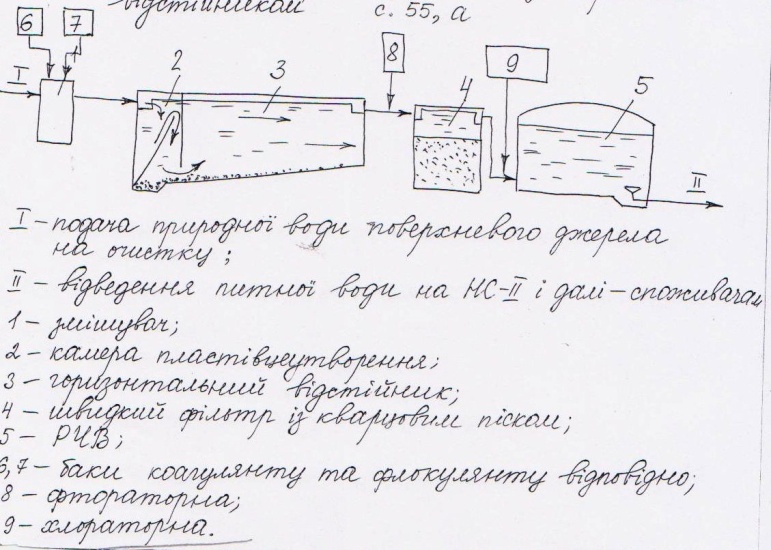 відстійником с. 55, а
6 7
I 2 3 8 9 4 5 II
I – подача природної води поверхневого джерела
на очистку;
II – відведення питної води на НС-II і далі – споживачам
1 – змішувач;
2 – камера пластівцеутворення;
3 – горизонтальний відстійник;
4 – швидкий фільтр із кварцовим піском;
5 – РЧВ;
6,7 – баки коагулянту та флокулянту відповідно;
8 – фтораторна;
9 – хлораторна.